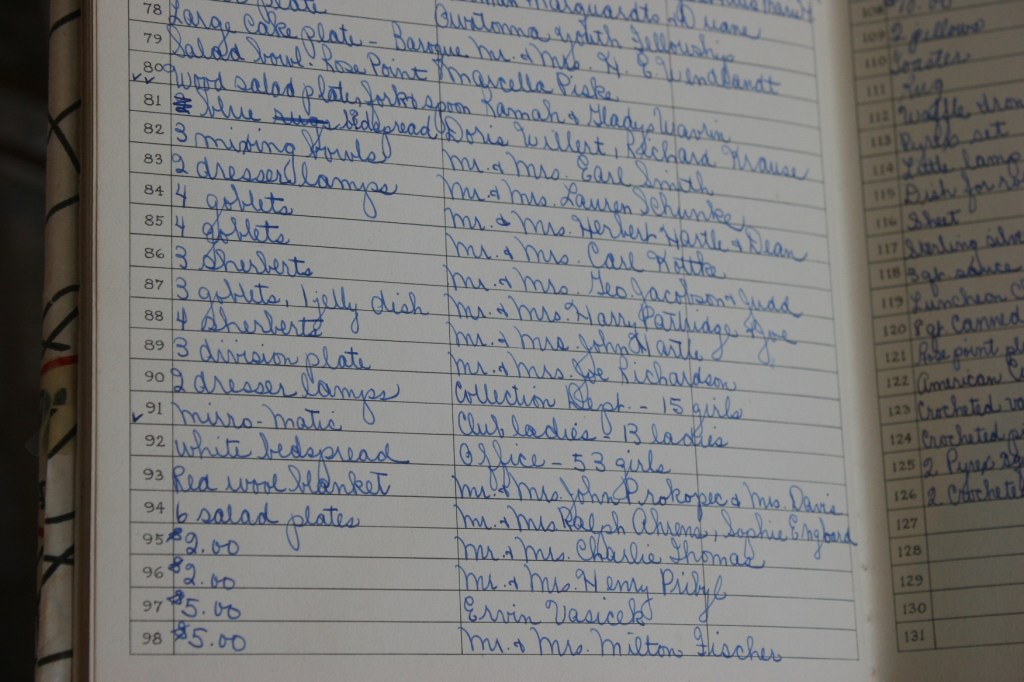 Marquardts, Duane
plate Owatonna Youth Fellowship
78 Large cake plate - Baroque Mr. & Mrs. H. E. Wendlandt
79 Salad bowl - Rose Point Marcella Piske
80 wood salad plate, fork & spoon & Gladys Wavrin
81 blue bedspread Doris Willert, Richard Krause
82 3 mixing bowls Mr. & Mrs. Earl Smith
83 2 dresser lamps Mr. & Mrs. Lauren Schunke
84 4 goblets Mr. & Mrs. Herbert Hartle & Dean
85 4 goblets Mr. & Mrs. Carl Kottke
86 3 Sherberts Mr. & Mrs. Geo Jacobson & Judd
87 3 goblets, 1 jelly dish Mr. & Mrs. Harry Partridge
88 4 Sherberts Mr. & Mrs. John Hartle
89 3 division plate Mr. & Mrs. Joe Richardson
90 2 dresser lamps Collection Dept. - 15 girls
91 mirro-matic Club ladies - 13 ladies
92 white bedspread Office - 53 girls
93 Red wool blanket Mr. & Mrs. John Prokopec & Mrs. Davis
94 6 salad plates Mr. & Mrs Ralph Ahrens, Sophie
95 $2.00 Mr. & Mrs. Charlie Thomas
96 $2.00 Mr. & Mrs. Henry Pribyl
97 $5.00 Ervin Vasicek
98 $5.00 Mr. & Mrs. Milton Fischer
108 $10.00
109 2 pillows
110 Toaster
111 Rug
112 Waffle Iron
113 Pyrex set
114 Little lamp
115 Dish for
116 Sheet
117 Sterling silve
118 3 qt. sauce
119 Luncheon
120 8 qt. Canned
121 Rose point pl
122 American
123 Crocheted
124 Crocheted
125 2 Pyrex
126 2 Crocheted
127
128
129
130
131